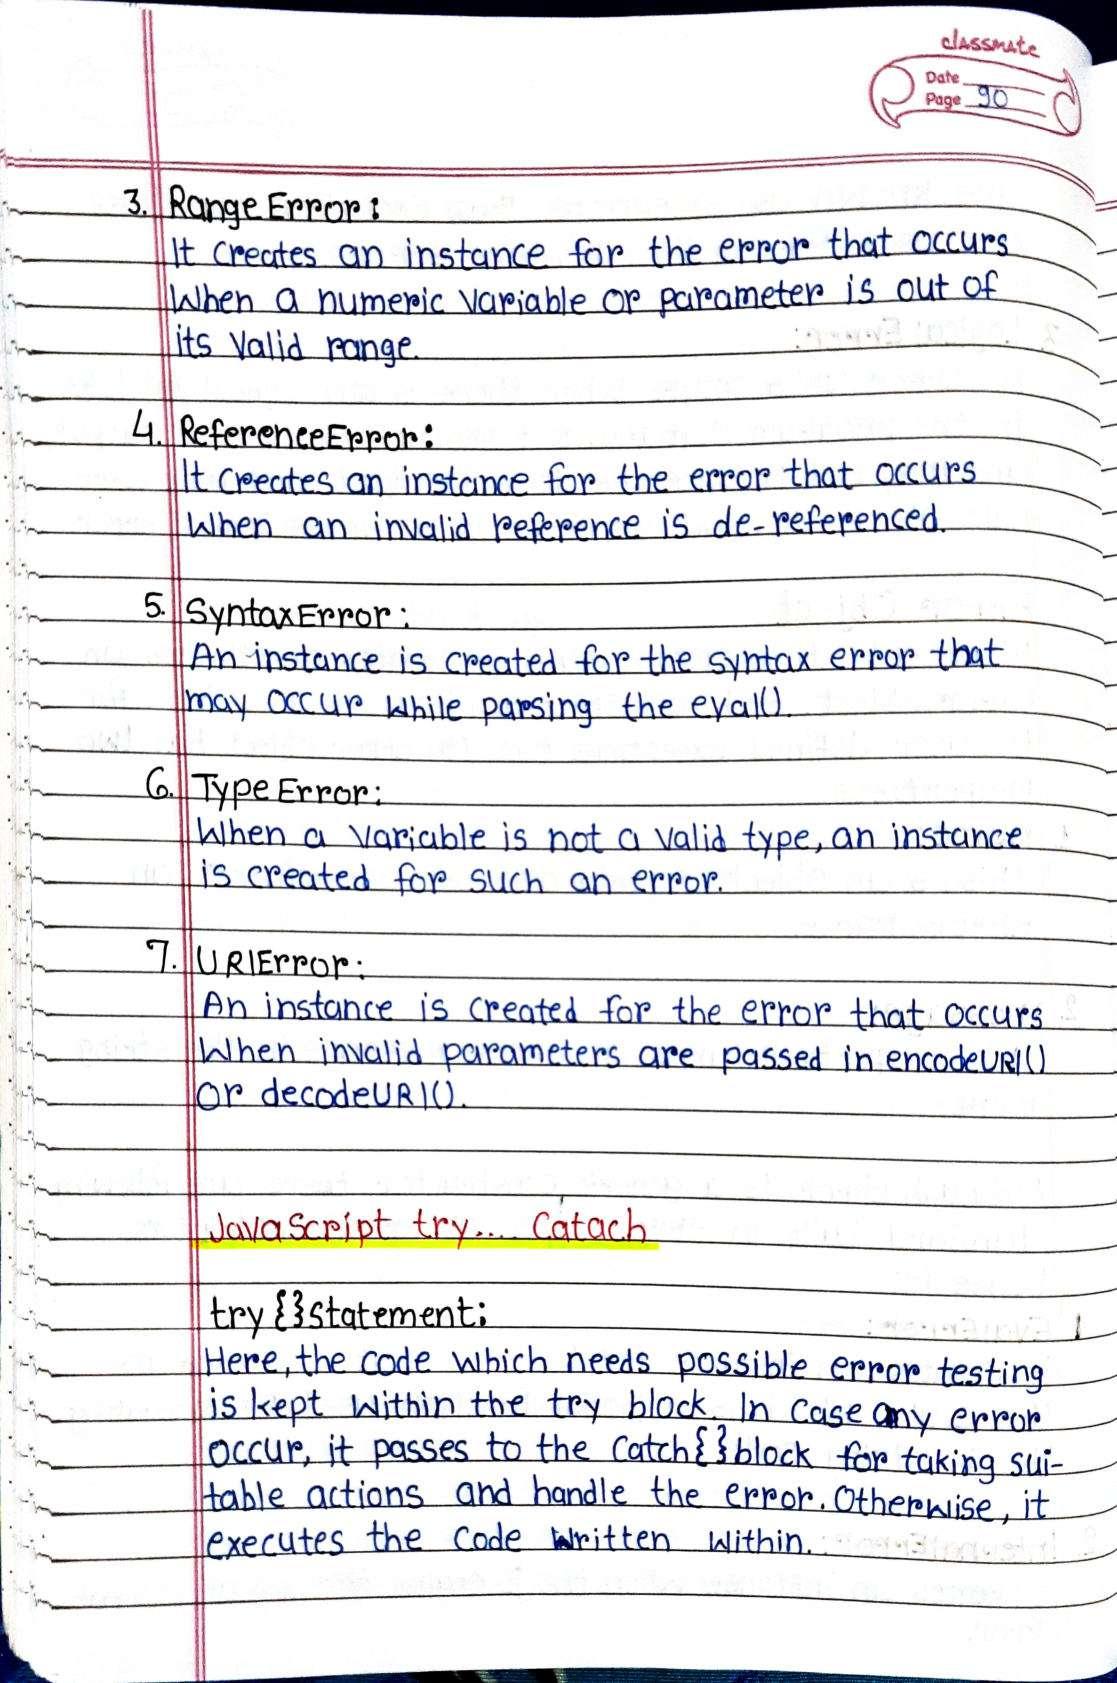 classmate
Date
Page 90
3. RangeError:
It creates an instance for the error that occurs
When a numeric variable or parameter is out of
its valid range.
4. ReferenceError:
It creates an instance for the error that occurs
When an invalid reference is de-referenced.
5. SyntaxError:
An instance is created for the syntax error that
may occur while parsing the eval().
6. TypeError:
When a variable is not a valid type, an instance
is created for such an error.
7. URIError:
An instance is created for the error that occurs
When invalid parameters are passed in encodeURI()
or decodeURI().
JavaScript try.... Catach
try{}statement:
Here, the code which needs possible error testing
is kept within the try block. In case any error
occur, it passes to the catch{}block for taking sui-
table actions and handle the error. Otherwise, it
executes the code written within.